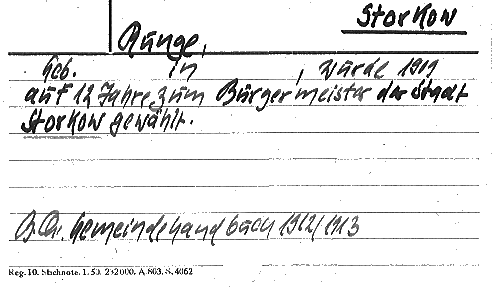 Storkow
Runge,
geb. in , wurde 1911
auf 12 Jahre zum Bürgermeister der Stadt
Storkow gewählt.
Gemeindehandbuch 1912/1913
Reg. 10. Stichnote. 1. 50. 2×2000. A. 803. S. 4062